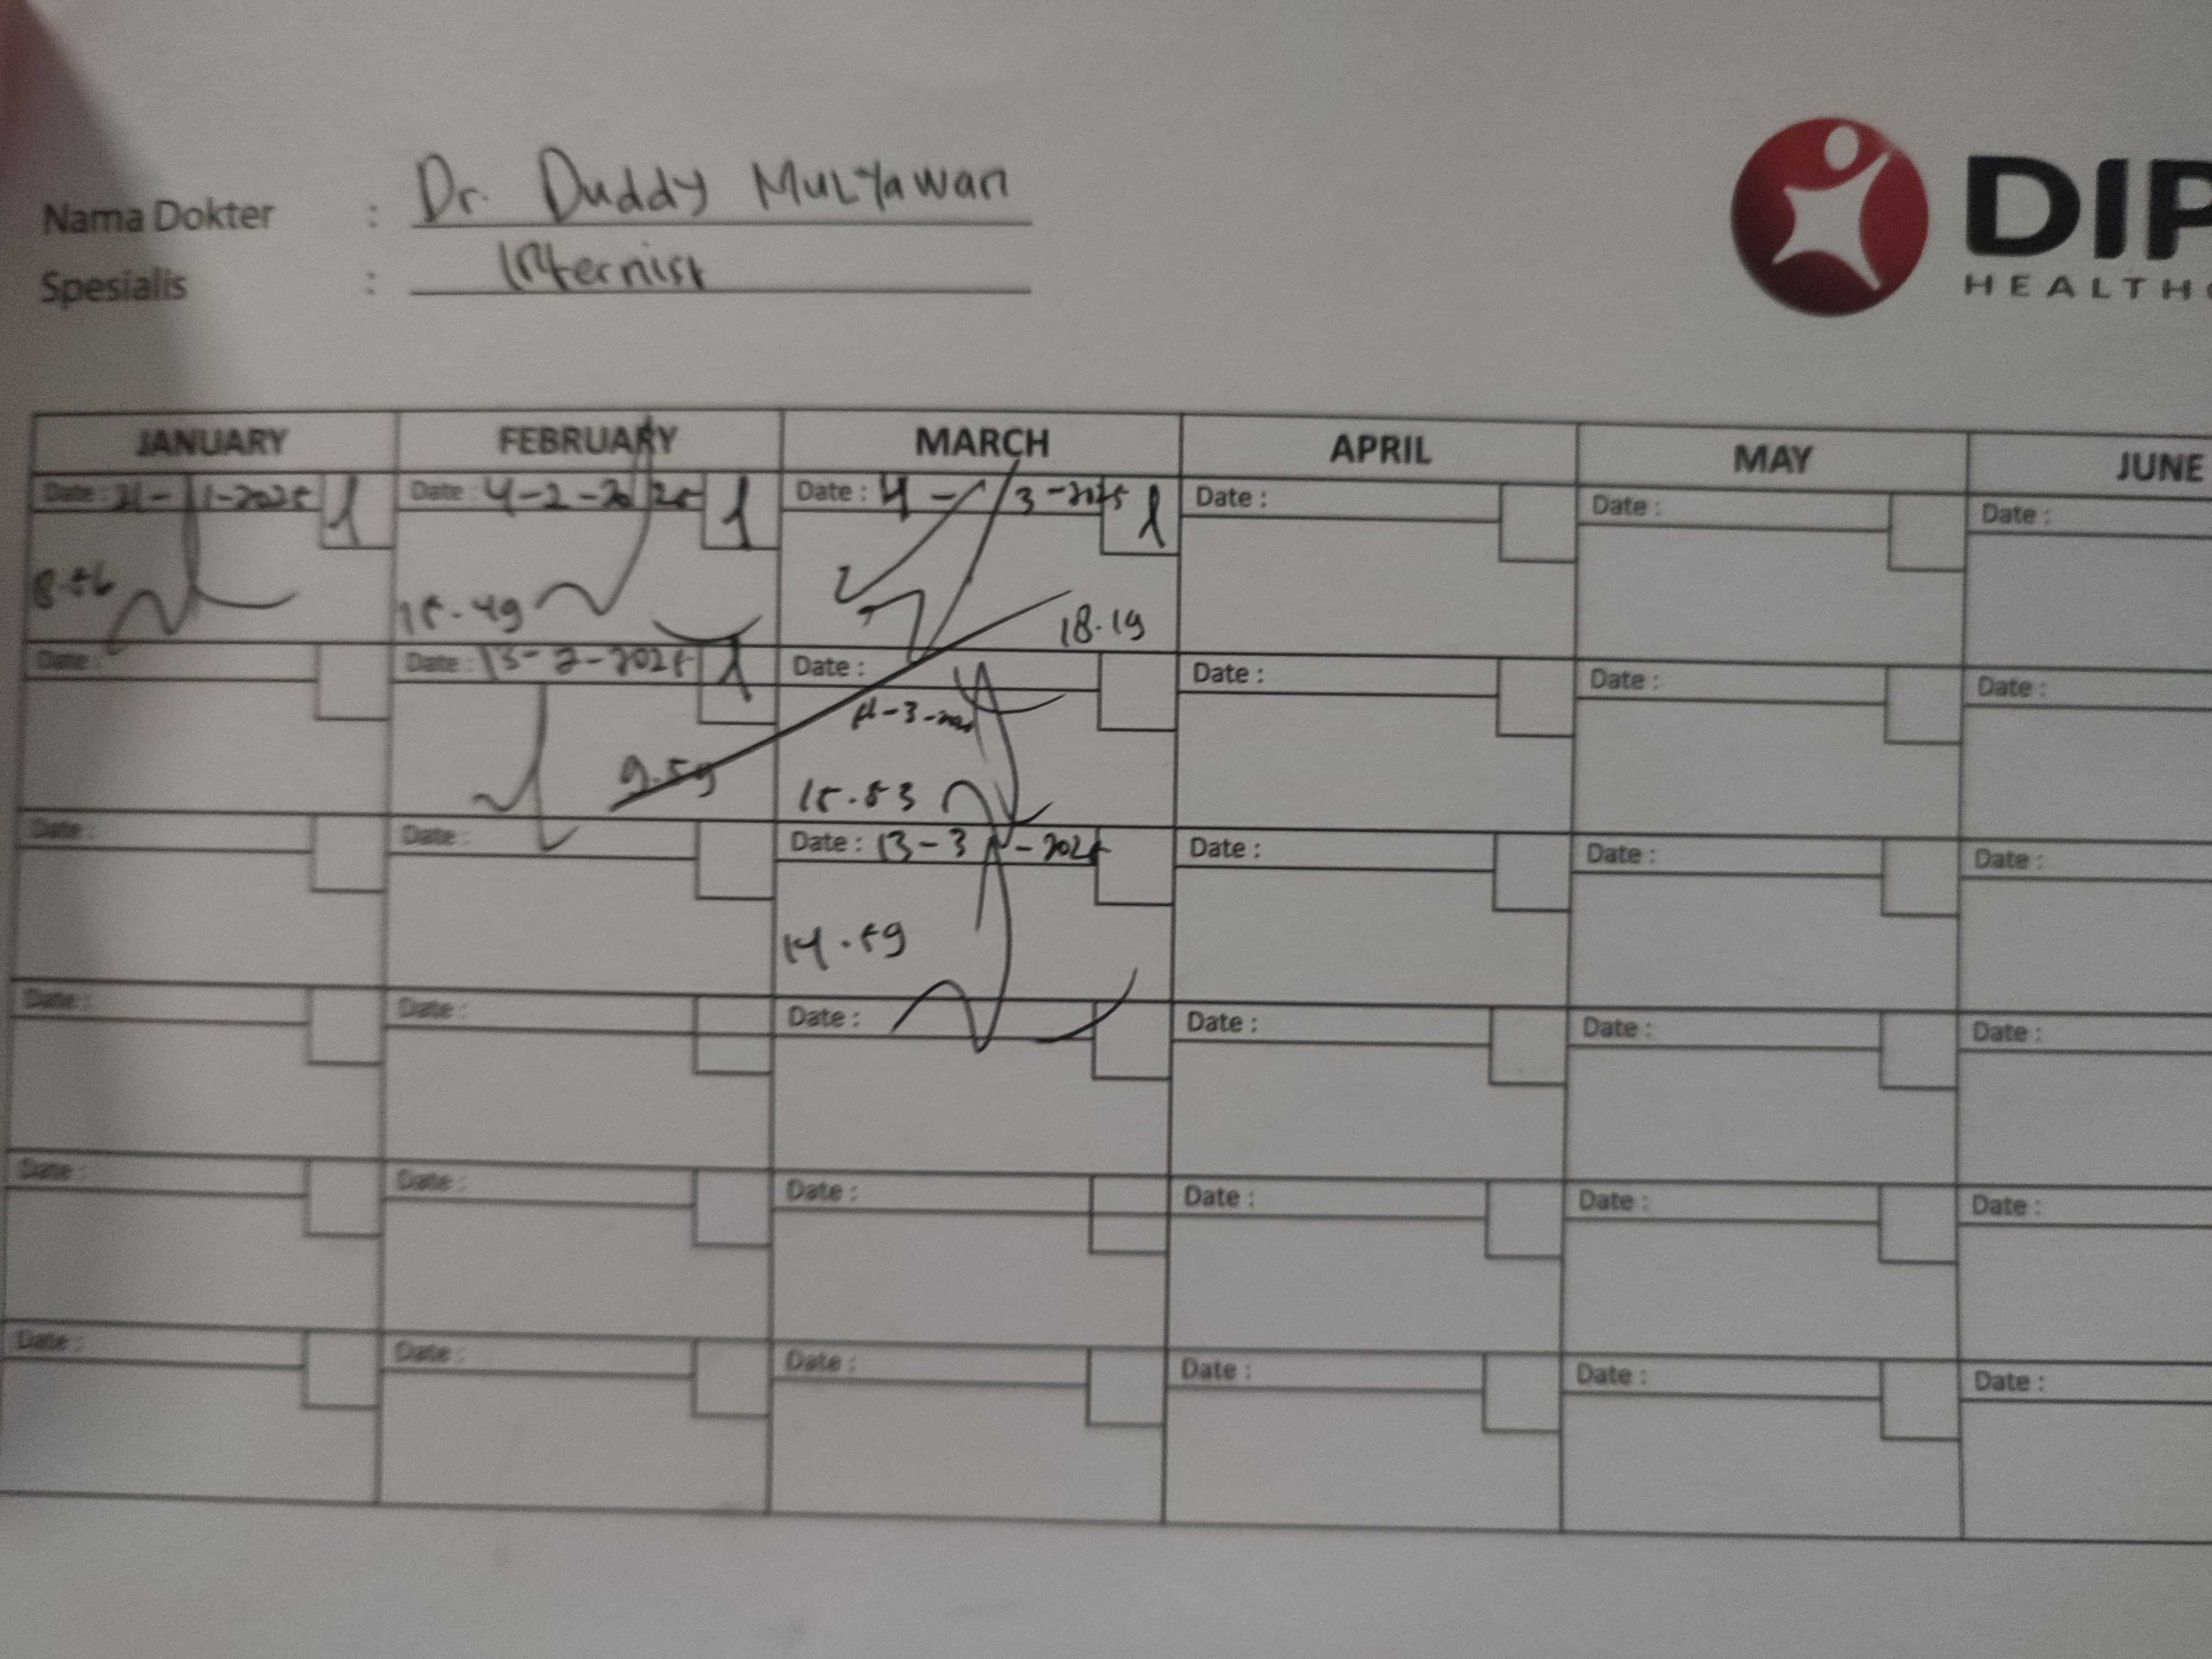 Nama Dokter : Dr. Duddy Mulyawan
Spesialis : Internist
DIP
HEALTHC
JANUARY FEBRUARY MARCH APRIL MAY JUNE
Date : 21-1-2025 1 Date : 4-2-2025 1 Date : 4-3-2025 1 Date : Date : Date :
8.56 15.49 18.19
Date : Date : 13-2-2025 1 Date : Date : Date : Date :
9.59 15.53
Date : Date : Date : 13-3-2025 Date : Date : Date :
14.59
Date : Date : Date : Date : Date : Date :
Date : Date : Date : Date : Date : Date :
Date : Date : Date : Date : Date : Date :